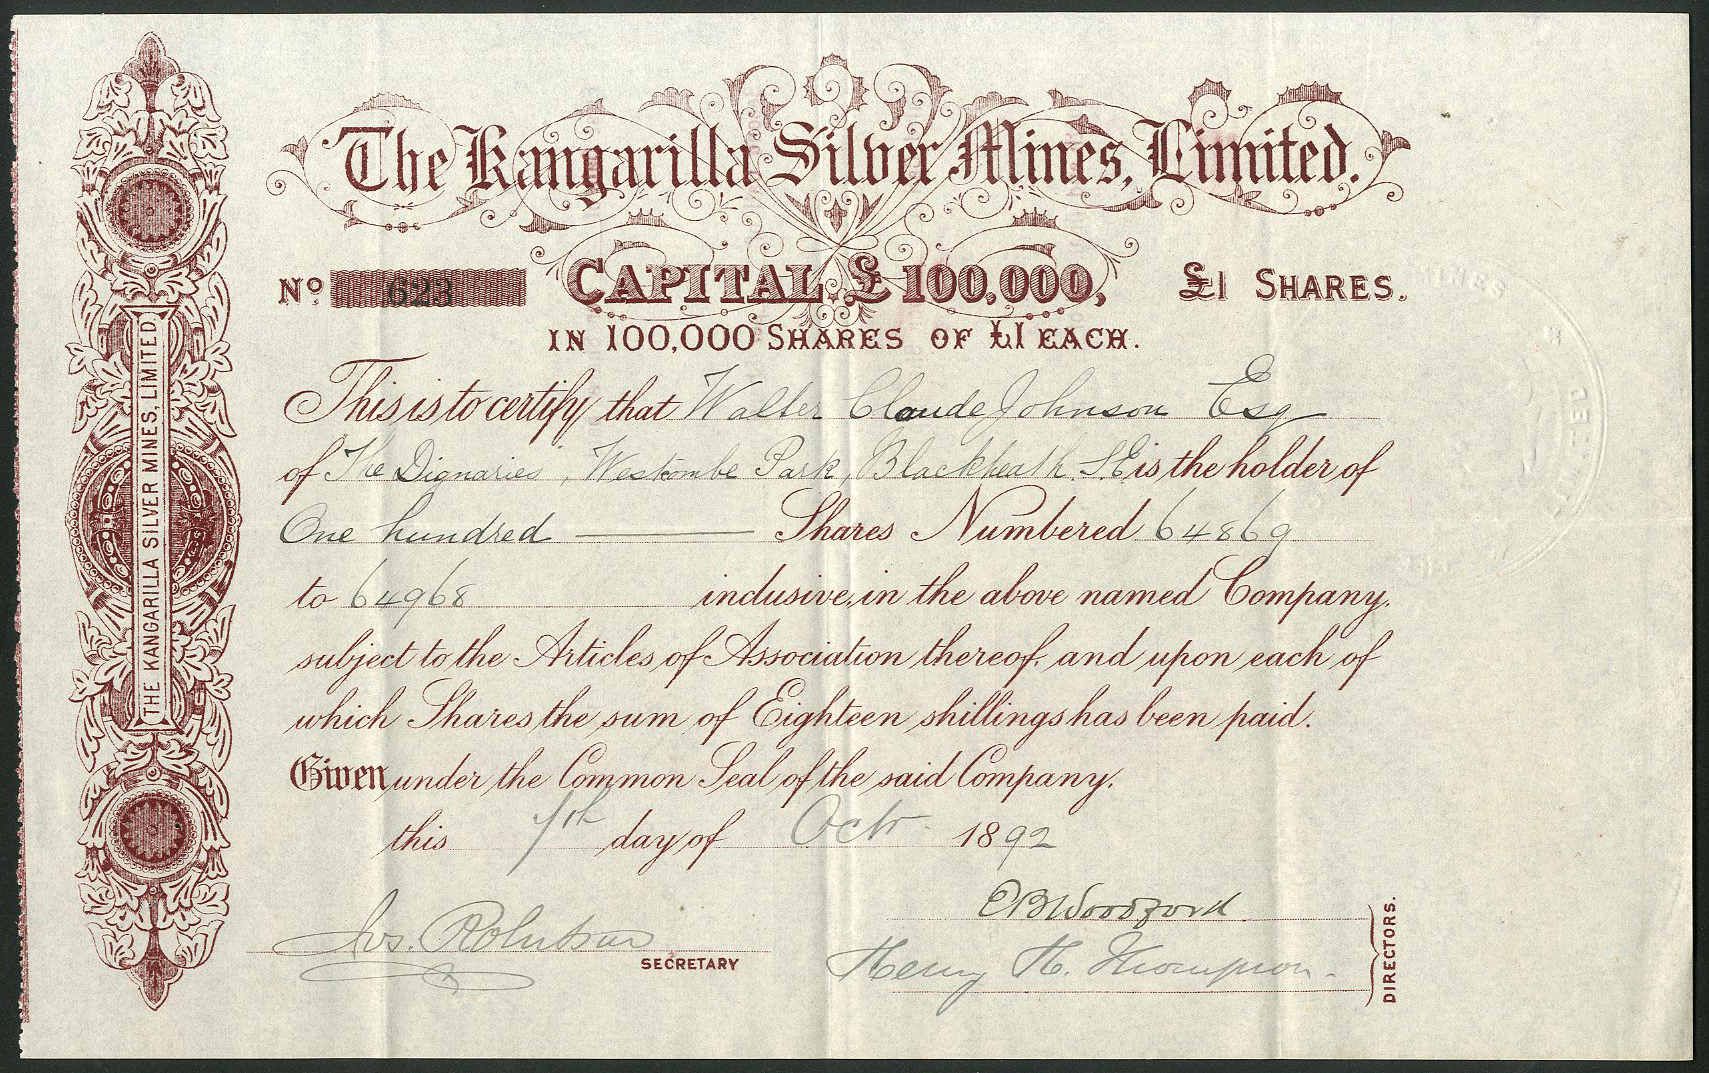 The Kangarilla Silver Mines, Limited.
No. 623 CAPITAL £100,000, £1 SHARES.
IN 100,000 SHARES OF £1 EACH.
This is to certify that Walter Claude Johnson Esq
of The Dignaries, Westcombe Park, Blackheath. S.E is the holder of
One hundred Shares Numbered 64869
to 64968 inclusive, in the above named Company,
subject to the Articles of Association thereof, and upon each of
which Shares the sum of Eighteen shillings has been paid.
Given under the Common Seal of the said Company,
this 7th day of Octr. 1892
E B Woodford
Jos. Robertson
SECRETARY
Henry H. Thompson.
DIRECTORS.
THE KANGARILLA SILVER MINES, LIMITED.
THE MINES LIMITED